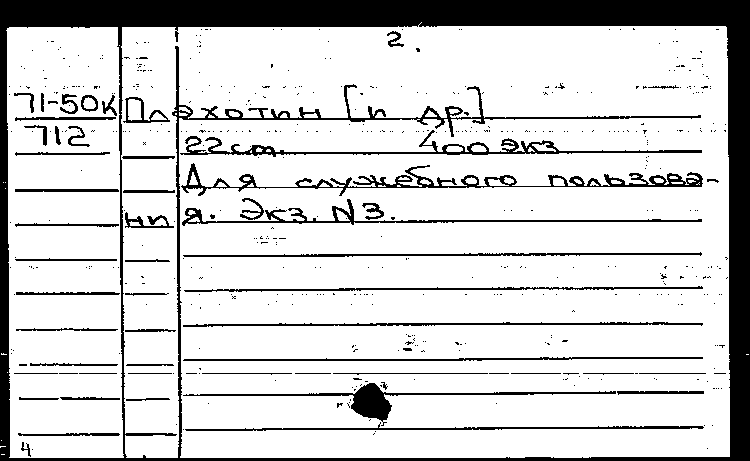 2.
71-50К Плэхотин [и др.]
712
22 ст. 400 экз
Для служебного пользова-
ния. Экз. N3.
4